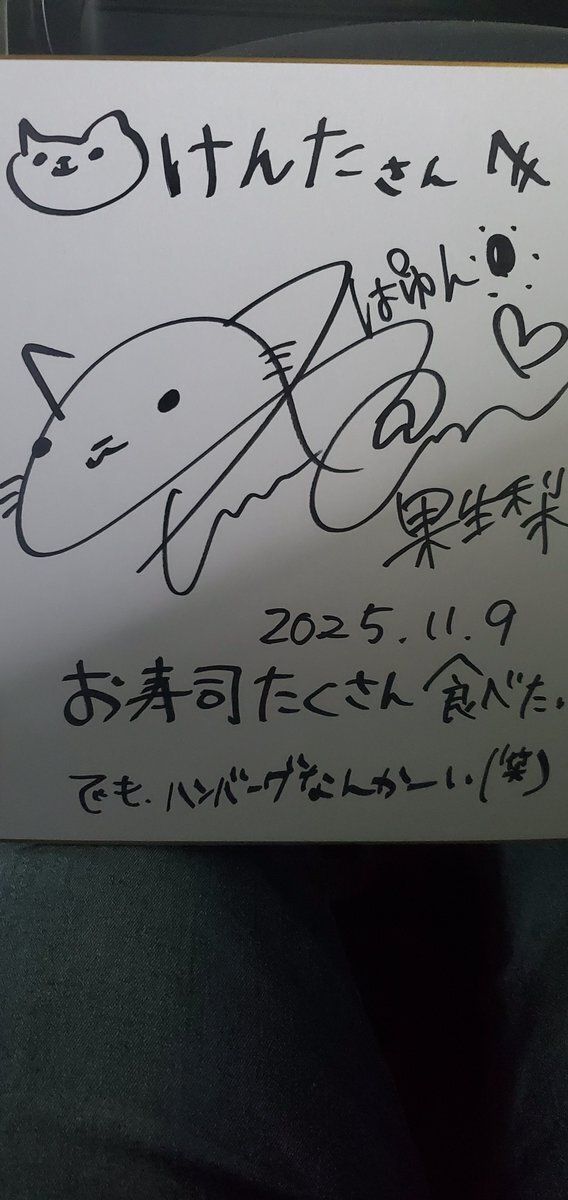 けんたさん へ
ぱゆん
果生梨
2025.11.9
お寿司たくさん食べた.
でも.ハンバーグなんかーい(笑)